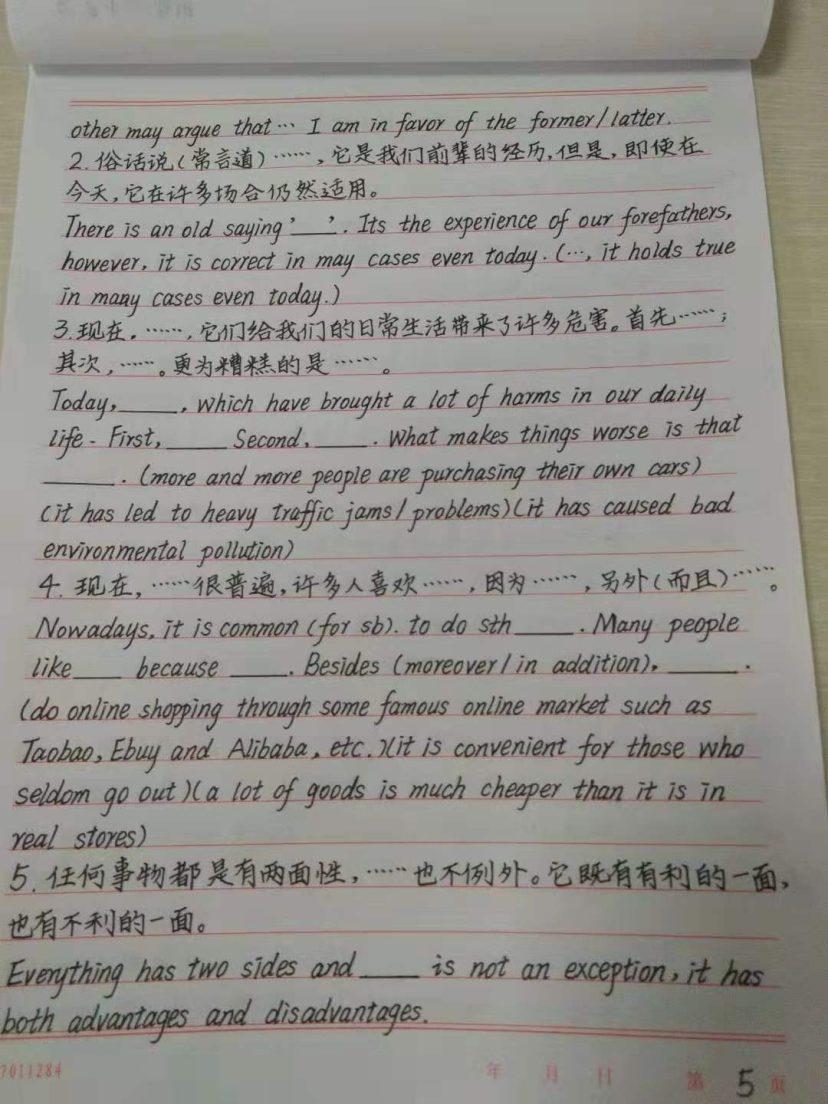 other may argue that… I am in favor of the former/latter.
2.俗话说(常言道)……,它是我们前辈的经历,但是,即使在
今天,它在许多场合仍然适用。
There is an old saying '___'. Its the experience of our forefathers,
however, it is correct in may cases even today. (…, it holds true
in many cases even today.)
3.现在,……,它们给我们的日常生活带来了许多危害。首先……;
其次,……。更为糟糕的是……。
Today,____, which have brought a lot of harms in our daily
life - First,____ Second,____. What makes things worse is that
_____. (more and more people are purchasing their own cars)
(it has led to heavy traffic jams/problems)(it has caused bad
environmental pollution)
4.现在,……很普遍,许多人喜欢……,因为……,另外(而且)……。
Nowadays, it is common (for sb). to do sth ____. Many people
like___ because ____. Besides (moreover/in addition), _____.
(do online shopping through some famous online market such as
Taobao, Ebuy and Alibaba, etc.)(it is convenient for those who
seldom go out)(a lot of goods is much cheaper than it is in
real stores)
5.任何事物都是有两面性,……也不例外。它既有有利的一面,
也有不利的一面。
Everything has two sides and ____ is not an exception, it has
both advantages and disadvantages.
7011284 年 月 日 第 5 页